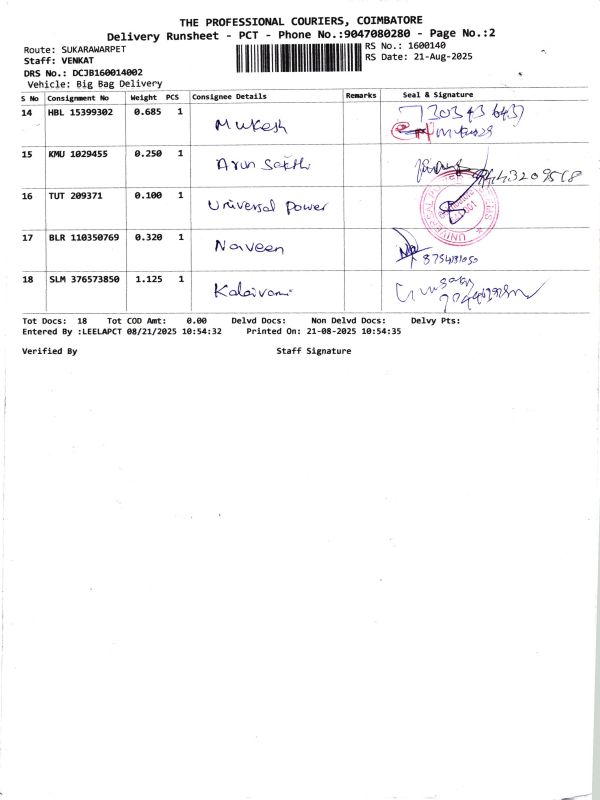 THE PROFESSIONAL COURIERS, COIMBATORE
Delivery Runsheet - PCT - Phone No.:9047080280 - Page No.:2
Route: SUKARAWARPET
RS No.: 1600140
Staff: VENKAT
RS Date: 21-Aug-2025
DRS No.: DCJB160014002
Vehicle: Big Bag Delivery
S No Consignment No Weight PCS Consignee Details Remarks Seal & Signature
14 HBL 15399302 0.685 1 Mukesh
15 KMU 1029455 0.250 1 Arun Sakthi
16 TUT 209371 0.100 1 Universal Power
17 BLR 110350769 0.320 1 Naveen
18 SLM 376573850 1.125 1 Kalaivani
Tot Docs: 18 Tot COD Amt: 0.00 Delvd Docs: Non Delvd Docs: Delvy Pts:
Entered By :LEELAPCT 08/21/2025 10:54:32 Printed On: 21-08-2025 10:54:35
Verified By Staff Signature